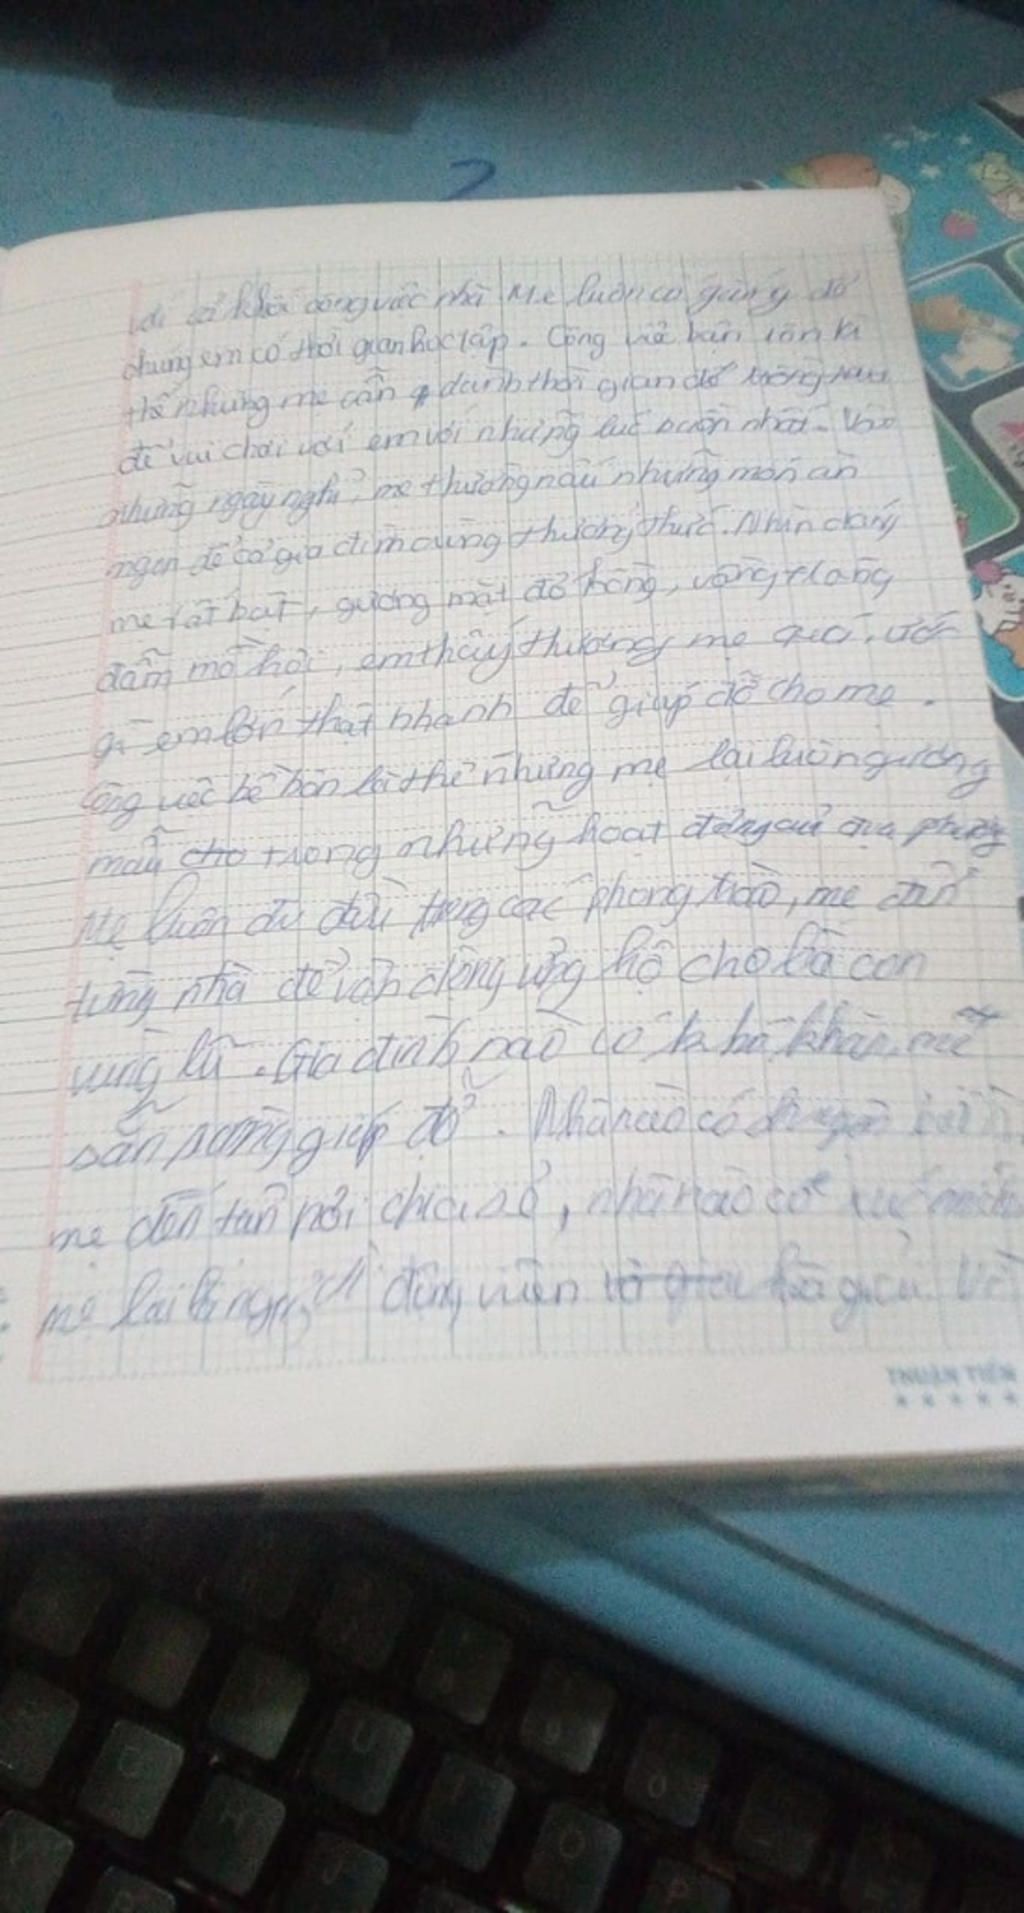 2
công việc nhà Mẹ luôn cố gắng để
chúng em có thời gian học tập. Công việc bận rộn là
thế nhưng mẹ cần dành thời gian
để vui chơi với em với những lúc buồn nhất. Vào
những ngày nghỉ, mẹ thường nấu những món ăn
ngon để cả gia đình cùng thưởng thức. Nhìn dáng
mẹ tất bật, gương mặt đỏ hồng, vầng
đẫm mồ hôi, em thấy thương mẹ quá. ước
gì em lớn thật nhanh để giúp đỡ cho mẹ.
Công việc bề bộn là thế nhưng mẹ lại luôn gương
mẫu cho trong những hoạt động của
Mẹ luôn đi đầu trong các phong trào, mẹ đến
từng nhà để vận động ủng hộ cho bà con
vùng lũ. Gia đình nào có khó khăn, mẹ
sẵn sàng giúp đỡ. Nhà nào có
mẹ đến tận nơi chia sẻ, nhà nào có
mẹ lại động viên
THUẬN TIẾN